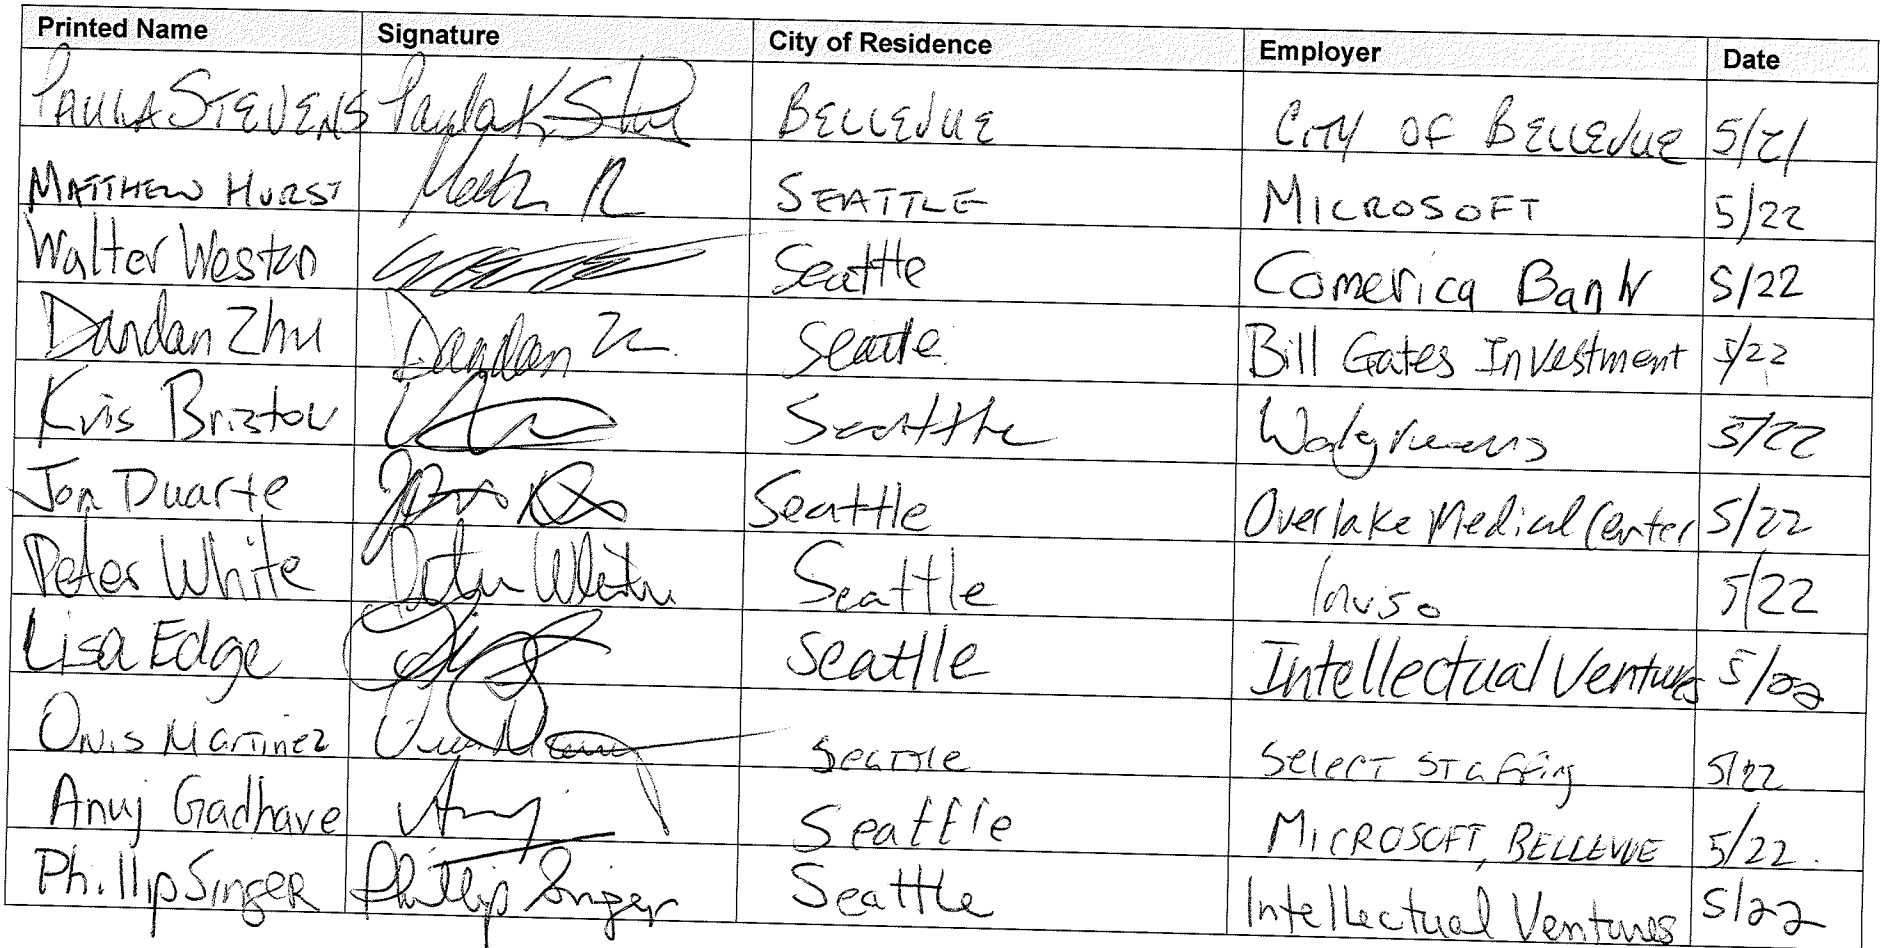 Printed Name Signature City of Residence Employer Date
PAULA STEVENS Paula K. BELLEVUE CITY OF BELLEVUE 5/21
MATTHEW HURST SEATTLE MICROSOFT 5/22
Walter Weston Seattle Comerica Bank 5/22
Dandan Zhu Dandan Seattle Bill Gates Investment 5/22
Kris Bristow Seattle Walgreens 5/22
Jon Duarte Seattle Overlake Medical Center 5/22
Peter White Peter White Seattle Inviso 5/22
Lisa Edge Seattle Intellectual Ventures 5/22
Onis Martinez Seattle Select Staffing 5/22
Anuj Gadhave Anuj Seattle MICROSOFT, BELLEVUE 5/22.
Phillip Singer Phillip Singer Seattle Intellectual Ventures 5/22